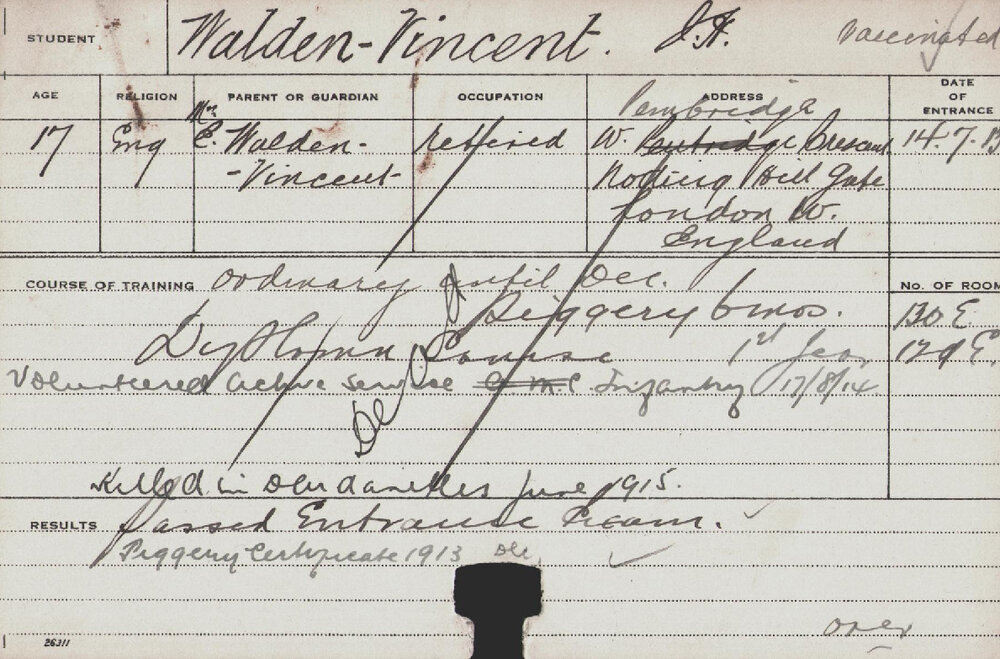 STUDENT Walden-Vincent. J.H. Vaccinated
AGE RELIGION PARENT OR GUARDIAN OCCUPATION ADDRESS DATE OF ENTRANCE
Pembridge
17 Eng Mr E. Walden- Retired W. Crescent 14.7.13
-Vincent- Noting Hill Gate
London W.
England
COURSE OF TRAINING Ordinary until Dec. No. OF ROOM
Piggery 6mos. 130 E.
Diploma Course 1st Year 129 E.
Volunteered active service Infantry 17/8/14
Killed in Dardanelles June 1915.
RESULTS Passed Entrance Exam.
Piggery Certificate 1913 Dec
over
26311